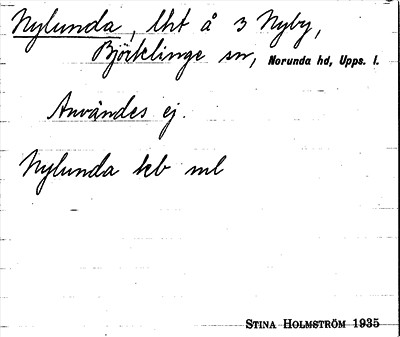 Nylunda, lht å 3 Nyby,
Björklinge sn, Norunda hd, Upps. l.
Användes ej.
Nylunda kb ml
STINA HOLMSTRÖM 1935